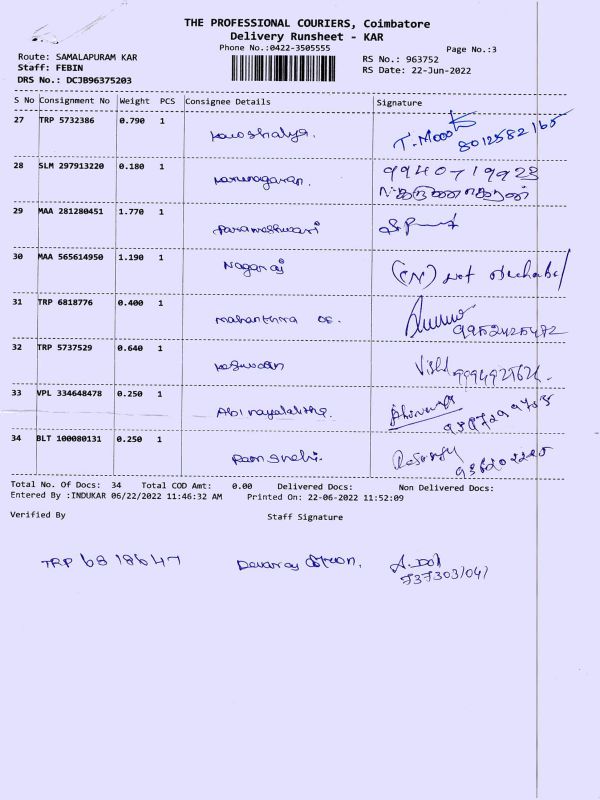 THE PROFESSIONAL COURIERS, Coimbatore
Delivery Runsheet - KAR
Phone No.:0422-3505555
Page No.:3
Route: SAMALAPURAM KAR
RS No.: 963752
Staff: FEBIN
RS Date: 22-Jun-2022
DRS No.: DCJB96375203
S No Consignment No Weight PCS Consignee Details Signature
27 TRP 5732386 0.790 1
Kowshalya. 8012582165
28 SLM 297913220 0.180 1 9940719923
Karunagaran.
29 MAA 281280451 1.770 1
Parameshwari
30 MAA 565614950 1.190 1
Nagaraj (CN) Not
31 TRP 6818776 0.400 1
9952425472
32 TRP 5737529 0.640 1
33 VPL 334648478 0.250 1
34 BLT 100080131 0.250 1
Total No. Of Docs: 34 Total COD Amt: 0.00 Delivered Docs: Non Delivered Docs:
Entered By :INDUKAR 06/22/2022 11:46:32 AM Printed On: 22-06-2022 11:52:09
Verified By Staff Signature
TRP 6818647 Devaraj